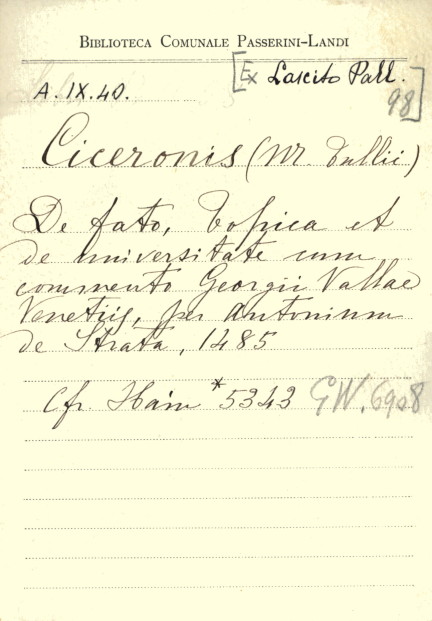 BIBLIOTECA COMUNALE PASSERINI-LANDI
[Ex Lascito Pall.
A. IX. 40.
98]
Ciceronis (M. Tullii)
De fato, Topica et
de universitate cum
commento Georgii Vallae
Venetiis, per Antonium
de Strata, 1485
Cfr. Hain *5343 GW. 6908